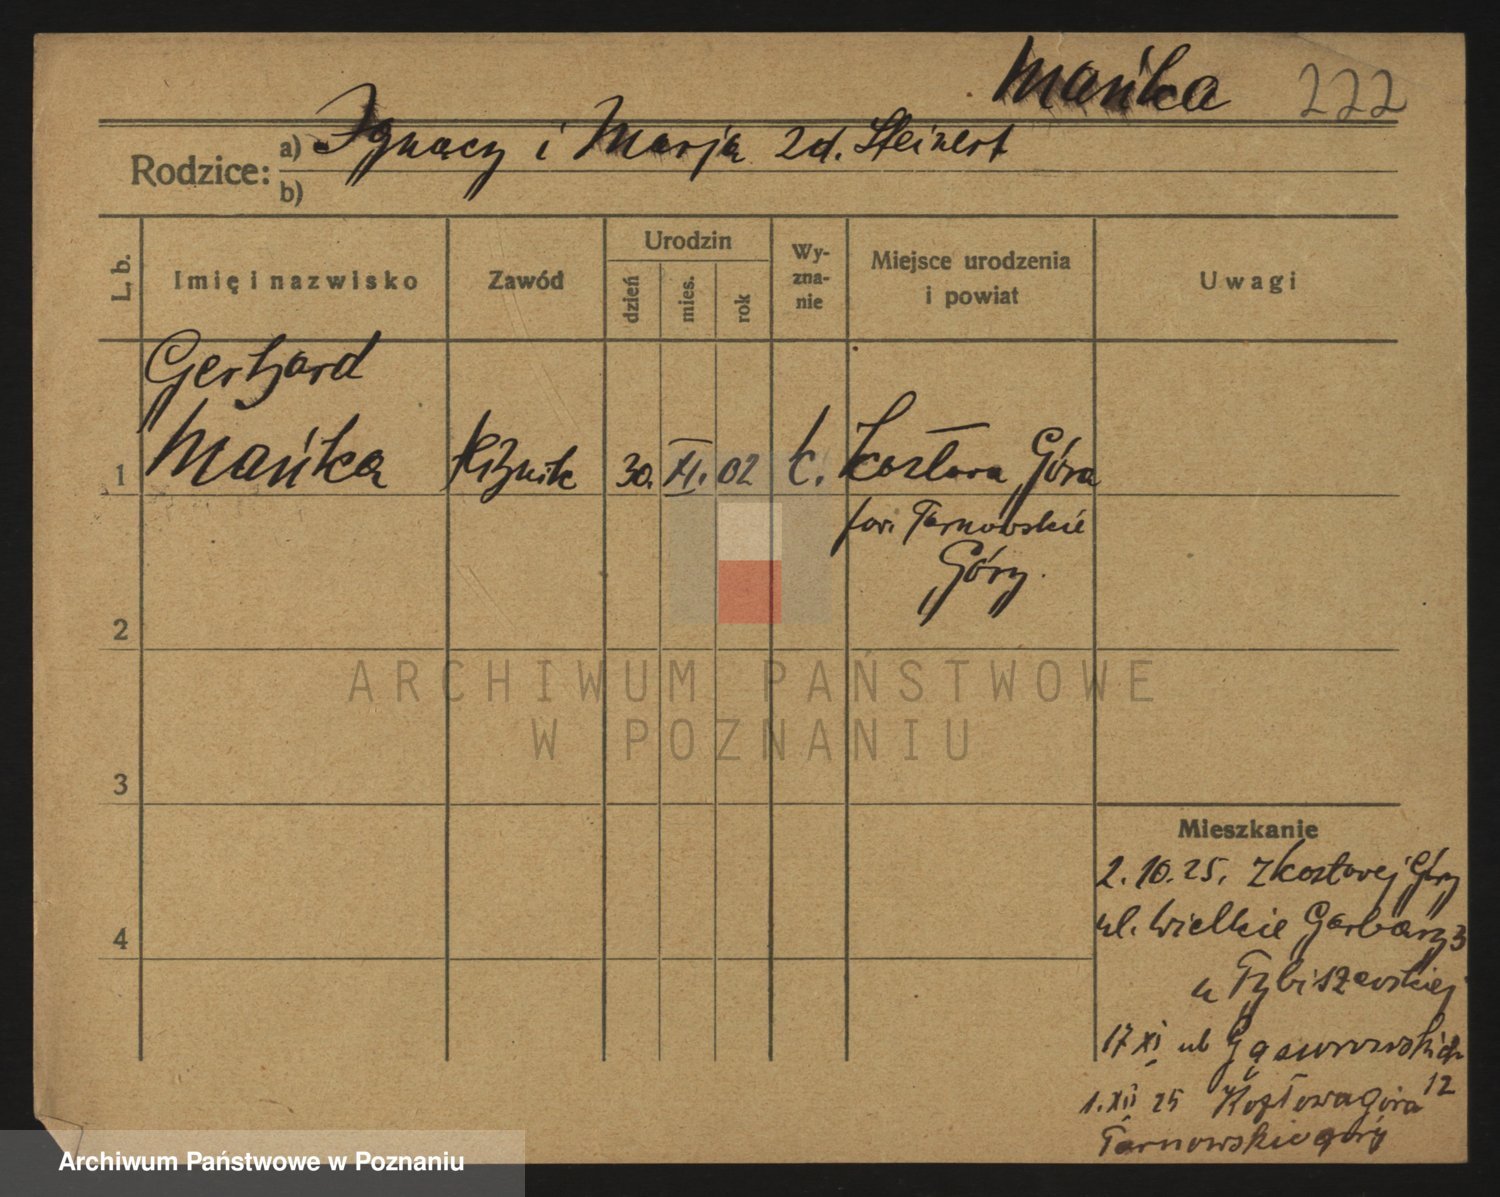 Mańka 222
Rodzice: a) Ignacy i Marja zd. Steinert
b)
L. b. Imię i nazwisko Zawód Urodzin dzień mies. rok Wy-zna-nie Miejsce urodzenia i powiat Uwagi
Gerhard
1 Mańka 30. XI. 02 k. Kozłowa Góra
pow. Tarnowskie
Góry.
2
ARCHIWUM PAŃSTWOWE
W POZNANIU
3
Mieszkanie
2.10.25. z Kozłowej Góry
ul. Wielkie Garbary 3
4
u
17 XI ul Gąsiorowskich
12
1.XII 25 Kozłowagóra
Tarnowskiegóry
Archiwum Państwowe w Poznaniu